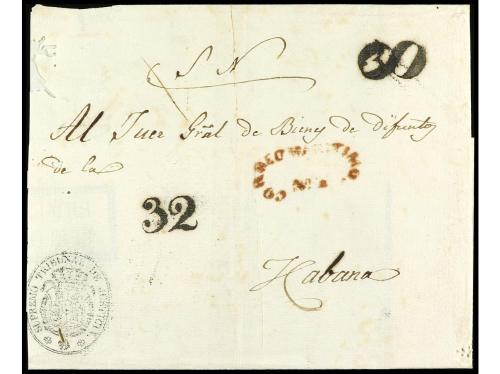 S N
39
Al Juez Gral de Bienes de difuntos
de la
CORREO MARITIMO
32
Habana
SUPREMO TRIBUNAL DE JUSTICIA